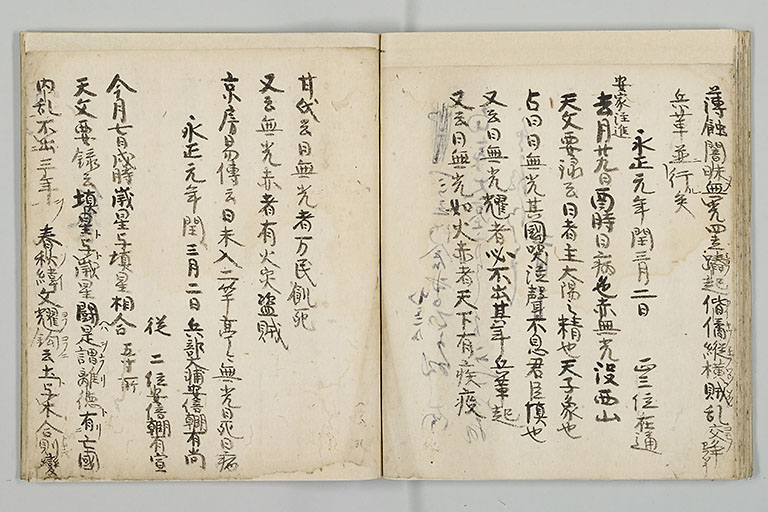 薄蝕闇昧無光四主蹻起僭僑縦横賊乱交争
兵革並行矣
永正元年閏三月二日 正三位在通
安家注進
去月廿九日酉時日病色赤無光没西山
天文要録云日者主大陽之精也天子象也
占曰日無光其國哭泣聲不息君臣慎也
又云日無光耀者必不出其年兵革起
又云日無光如火赤者天下有疾疫
甘氏云日無光者万民飢死
又云無光赤者有火災盗賊
京房易傳云日未入二竿亭々無光曰死曰病
永正元年閏三月二日兵部大輔安倍朝臣有尚
従二位安倍朝臣有宣
今月七日戌時歳星与填星相合 五寸所
天文要録云填星与歳星闘是謂離徳有亡國
内乱不出三年 春秋緯文耀鈎云土与木合則變